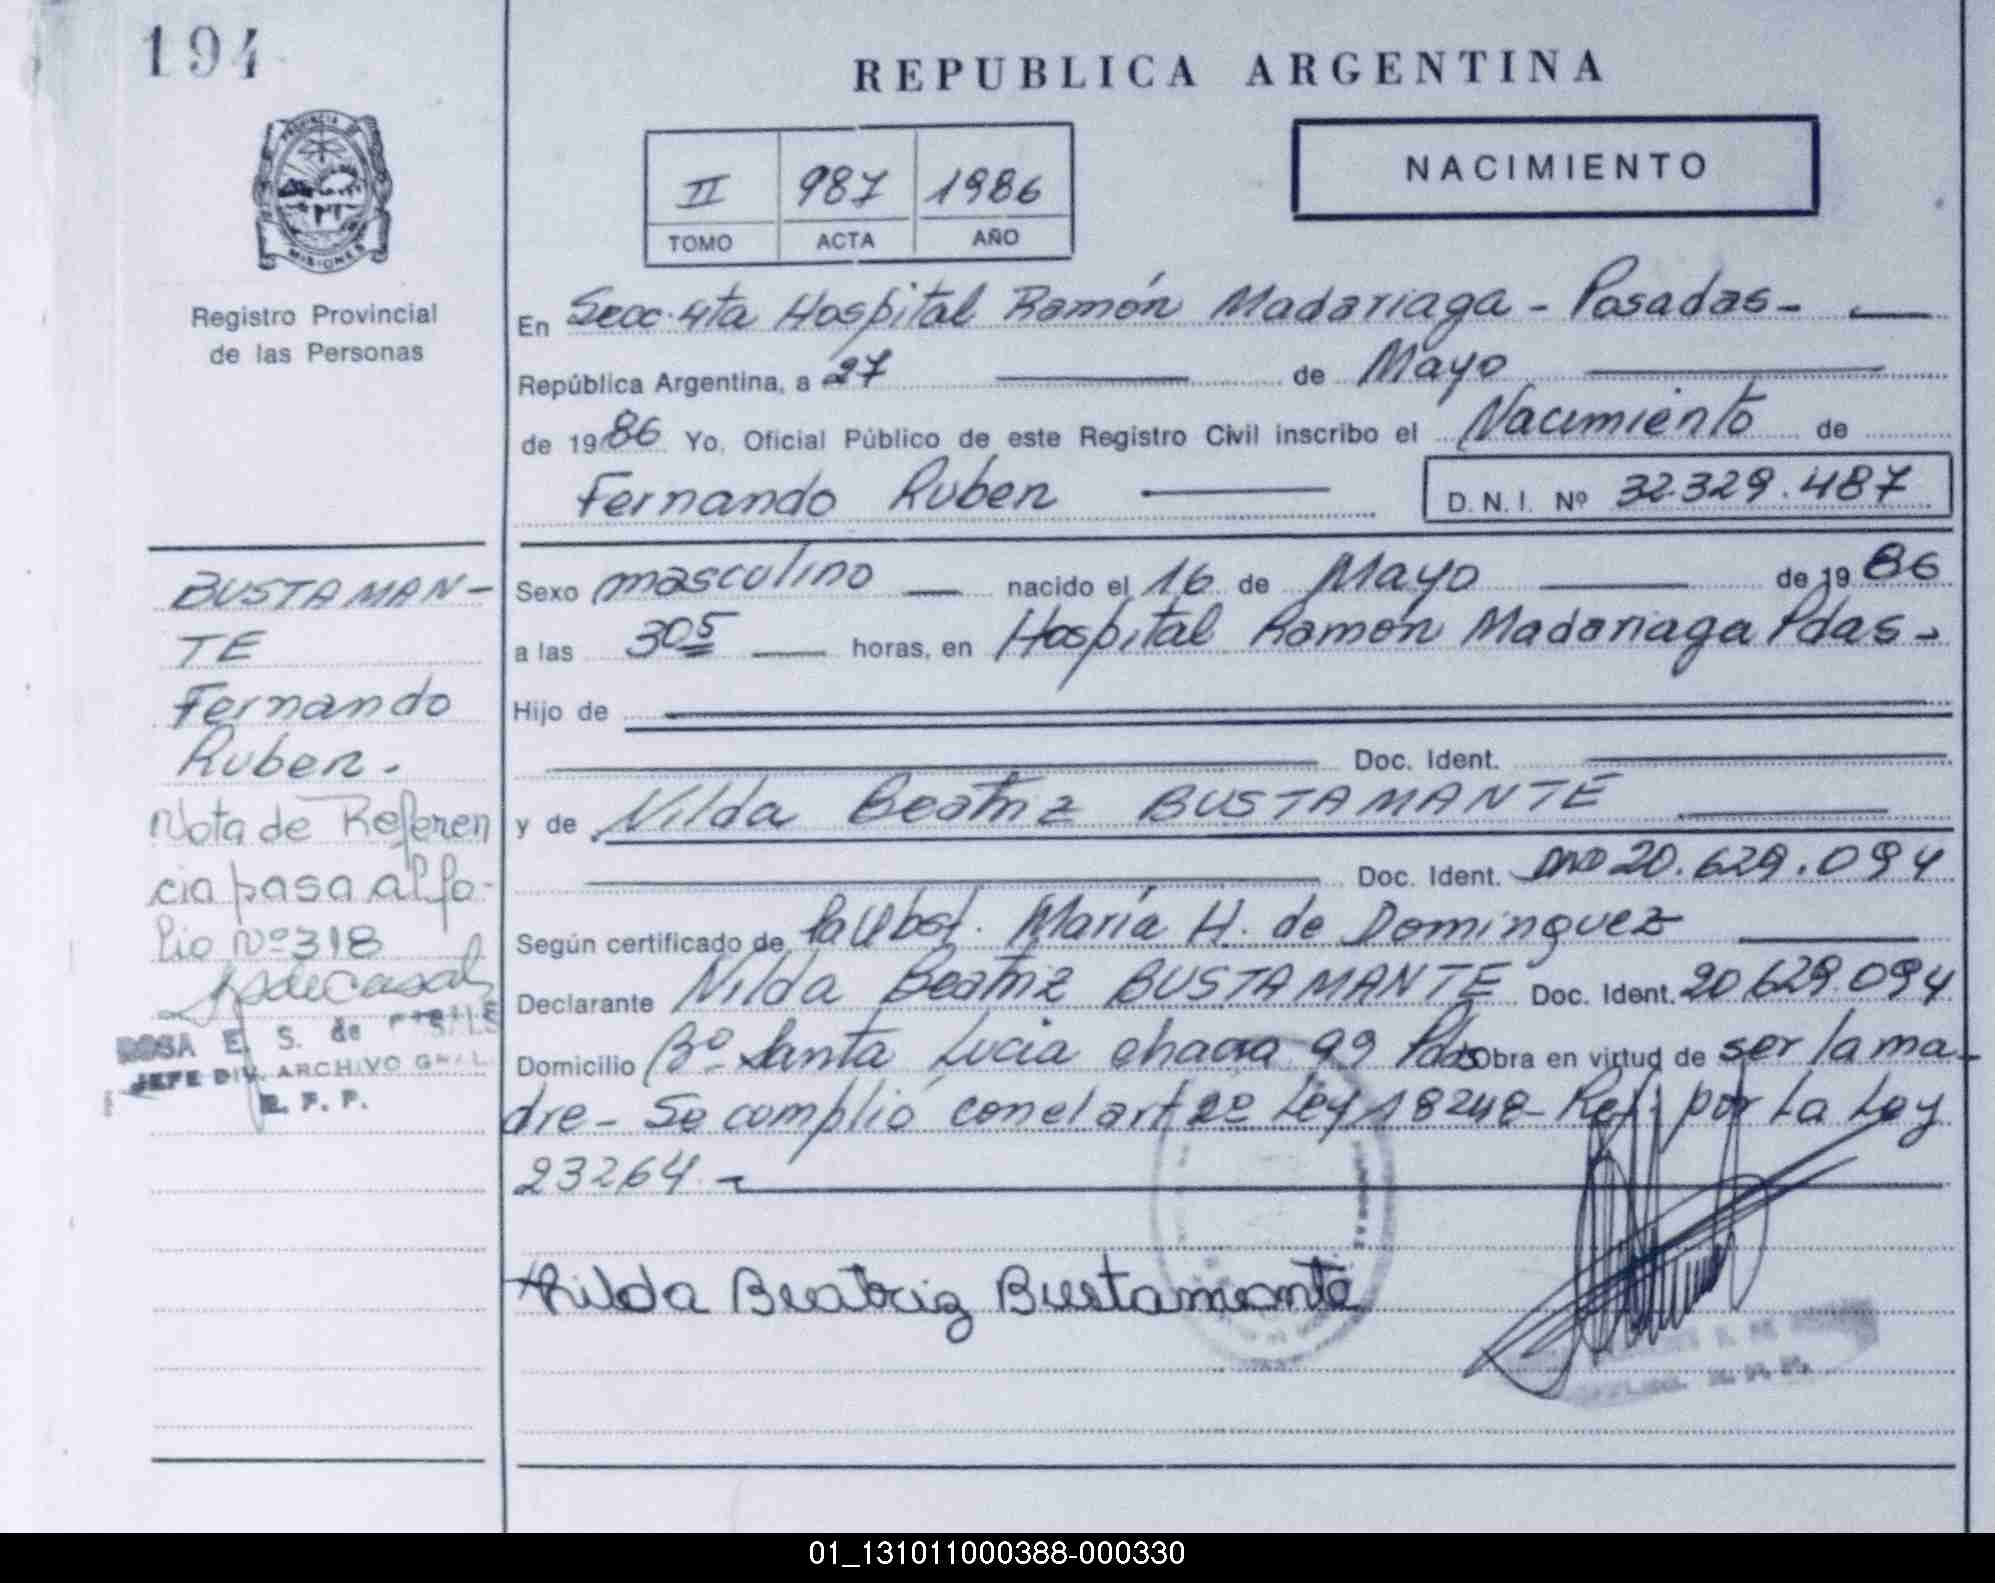 194
REPUBLICA ARGENTINA
PROVINCIA DE
MISIONES
Registro Provincial
de las Personas
II 987 1986
TOMO ACTA AÑO
NACIMIENTO
En Secc. 4ta Hospital Ramón Madariaga - Posadas -
República Argentina, a 27 de Mayo
de 1986 Yo, Oficial Público de este Registro Civil inscribo el Nacimiento de
Fernando Ruben D. N. I. Nº 32.329.487
Sexo masculino nacido el 16 de Mayo de 19 86
a las 3 05 horas, en Hospital Ramón Madariaga Pdas -
Hijo de
Doc. Ident.
y de Nilda Beatriz BUSTAMANTE
Doc. Ident. DNI 20.629.094
Según certificado de la Obst. María H. de Dominguez
Declarante Nilda Beatriz BUSTAMANTE Doc. Ident. 20.629.094
Domicilio Bº Santa Lucia chacra 99 Pdas Obra en virtud de ser la ma-
dre - Se cumplió con el art 2º Ley 18248 - Ref. por La Ley
23264 -
Nilda Beatriz Bustamante
BUSTAMAN-
TE
Fernando
Ruben.
Nota de Referen
cia pasa al fo-
lio Nº 318
ROSA E. S. de
JEFE DIV. ARCHIVO GRAL.
R. P. P.
01_131011000388-000330